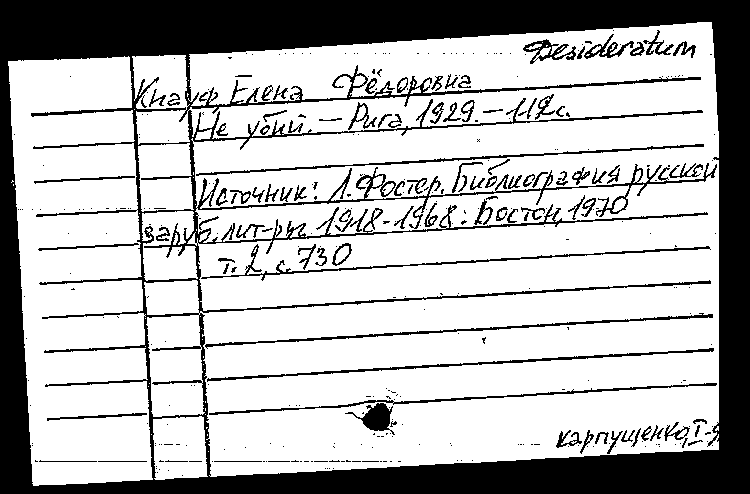 Desideratum
Кнауф, Елена Фёдоровна
Не убий. – Рига, 1929. – 112 с.
Источник: Л. Фостер. Библиография русской
заруб. лит-ры 1918-1968: Бостон, 1970
т. 2, с. 730
Карпущенко, I-я